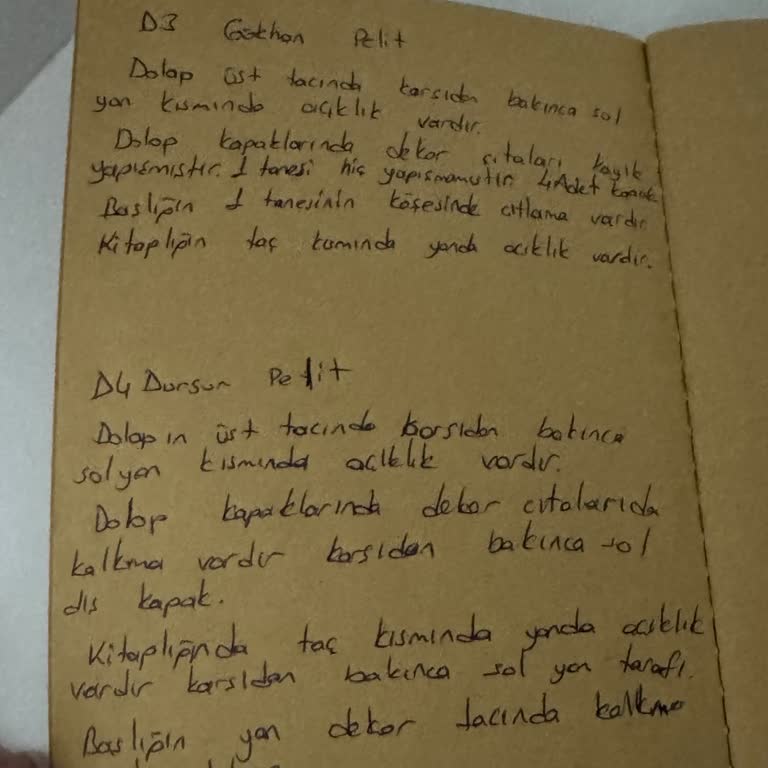 D3 Gökhan Pelit
Dolap üst tacında karsıdan bakınca sol
yan kısmında açıklık vardır.
Dolap kapaklarında dekor çıtaları kayık
yapısmıstır. 1 tanesi hiç yapısmamıstır. 4 Adet kapak
Baslığın 1 tanesinin kösesinde çıtlama vardır
Kitaplığın taç kısmında yanda açıklık vardır.
D4 Dursun Pelit
Dolap ın üst tacında karsıdan bakınca
sol yan kısmında acıklık vardır.
Dolap kapaklarında dekor cıtalarıda
kalkma vardır karsıdan bakınca sol
dıs kapak.
Kitaplığında taç kısmında yanda acıklık
vardır karsıdan bakınca sol yan tarafı.
Baslığın yan dekor tacında kalkma